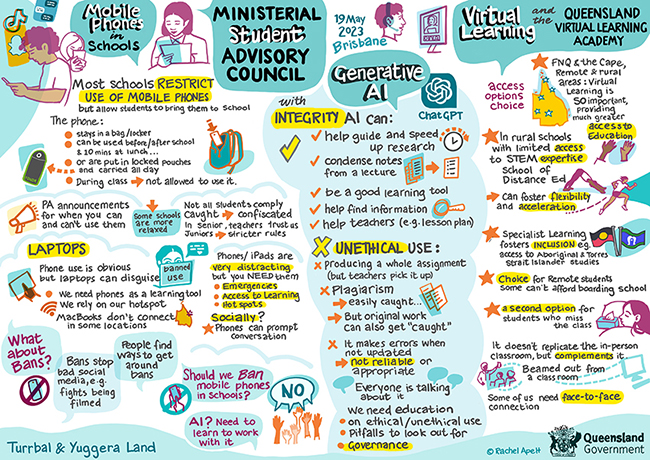 Mobile
phones in
Schools
Most schools RESTRICT
USE OF MOBILE PHONES
but allow students to bring them to School
The phone:
stays in a bag/locker
can be used before/after school
& 10 mins at lunch...
or are put in locked pouches
and carried all day
During class → not allowed to use it.
PA announcements
for when you can
and can't use them
Some schools
are more
relaxed
Not all students comply
Caught → confiscated
In senior, teachers trust us
Juniors → stricter rules
LAPTOPS
Phone use is obvious
but laptops can disguise
banned
use
We need phones as a learning tool
We rely on our hotspot
MacBooks don't connect
in some locations
Phones/ iPads are
very distracting
but you NEED them
Emergencies
Access to Learning
Hot spots
Socially?
Phones can prompt
conversation
What
about
Bans?
Bans stop
bad social
media, e.g.
fights being
filmed
People find
ways to get
around
bans
Should we Ban
mobile phones
in schools?
NO
AI? Need to
learn to work
with it
Turrbal & Yuggera Land
MINISTERIAL
Student
ADVISORY
COUNCIL
19 May
2023
Brisbane
Generative
AI
ChatGPT
with
INTEGRITY AI can:
help guide and speed
up research
condense notes
from a lecture
be a good learning tool
help find information
help teachers (e.g. lesson plan)
UNETHICAL USE:
Producing a whole assignment
(but teachers pick it up)
Plagiarism
→ easily caught...
→ But original work
can also get "caught"
It makes errors when
not updated
→ not reliable or
appropriate
Everyone is talking
about it
We need education
on ethical/unethical use
Pitfalls to look out for
Governance
Virtual
Learning
and
the
QUEENSLAND
VIRTUAL LEARNING
ACADEMY
access
options
choice
FNQ & the Cape,
Remote & rural
areas: Virtual
Learning is
SO important,
providing
much greater
access to
Education
In rural schools
with limited access
to STEM expertise
School of
Distance Ed
→ can foster flexibility
and acceleration
Specialist Learning
fosters INCLUSION e.g.
access to Aboriginal & Torres
Strait Islander studies
Choice for Remote students
some can't afford boarding school
a second option for
students who miss
the class
It doesn't replicate the in-person
classroom, but complements it
Beamed out from
a classroom
Some of us need face-to-face
connection
© Rachel Apelt
Queensland
Government